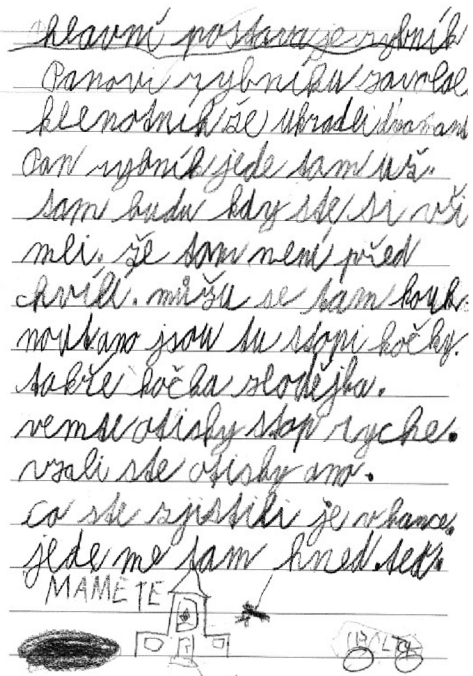 hlavní postava je rybník
Panovi rybníku zavolal
klenotník že ukradli diamant
Pan rybník jede tam už.
tam budu kdy ste si vší
mli. že tam není před
chvílí. můžu se tam kouk
nout ano jsou tu stopi kočky.
takže kočka zlodějka.
vemte otisky stop ryche.
vzali ste otisky ano.
co ste zjistili je v bance.
jede me tam hned teď.
MAMĚ TĚ